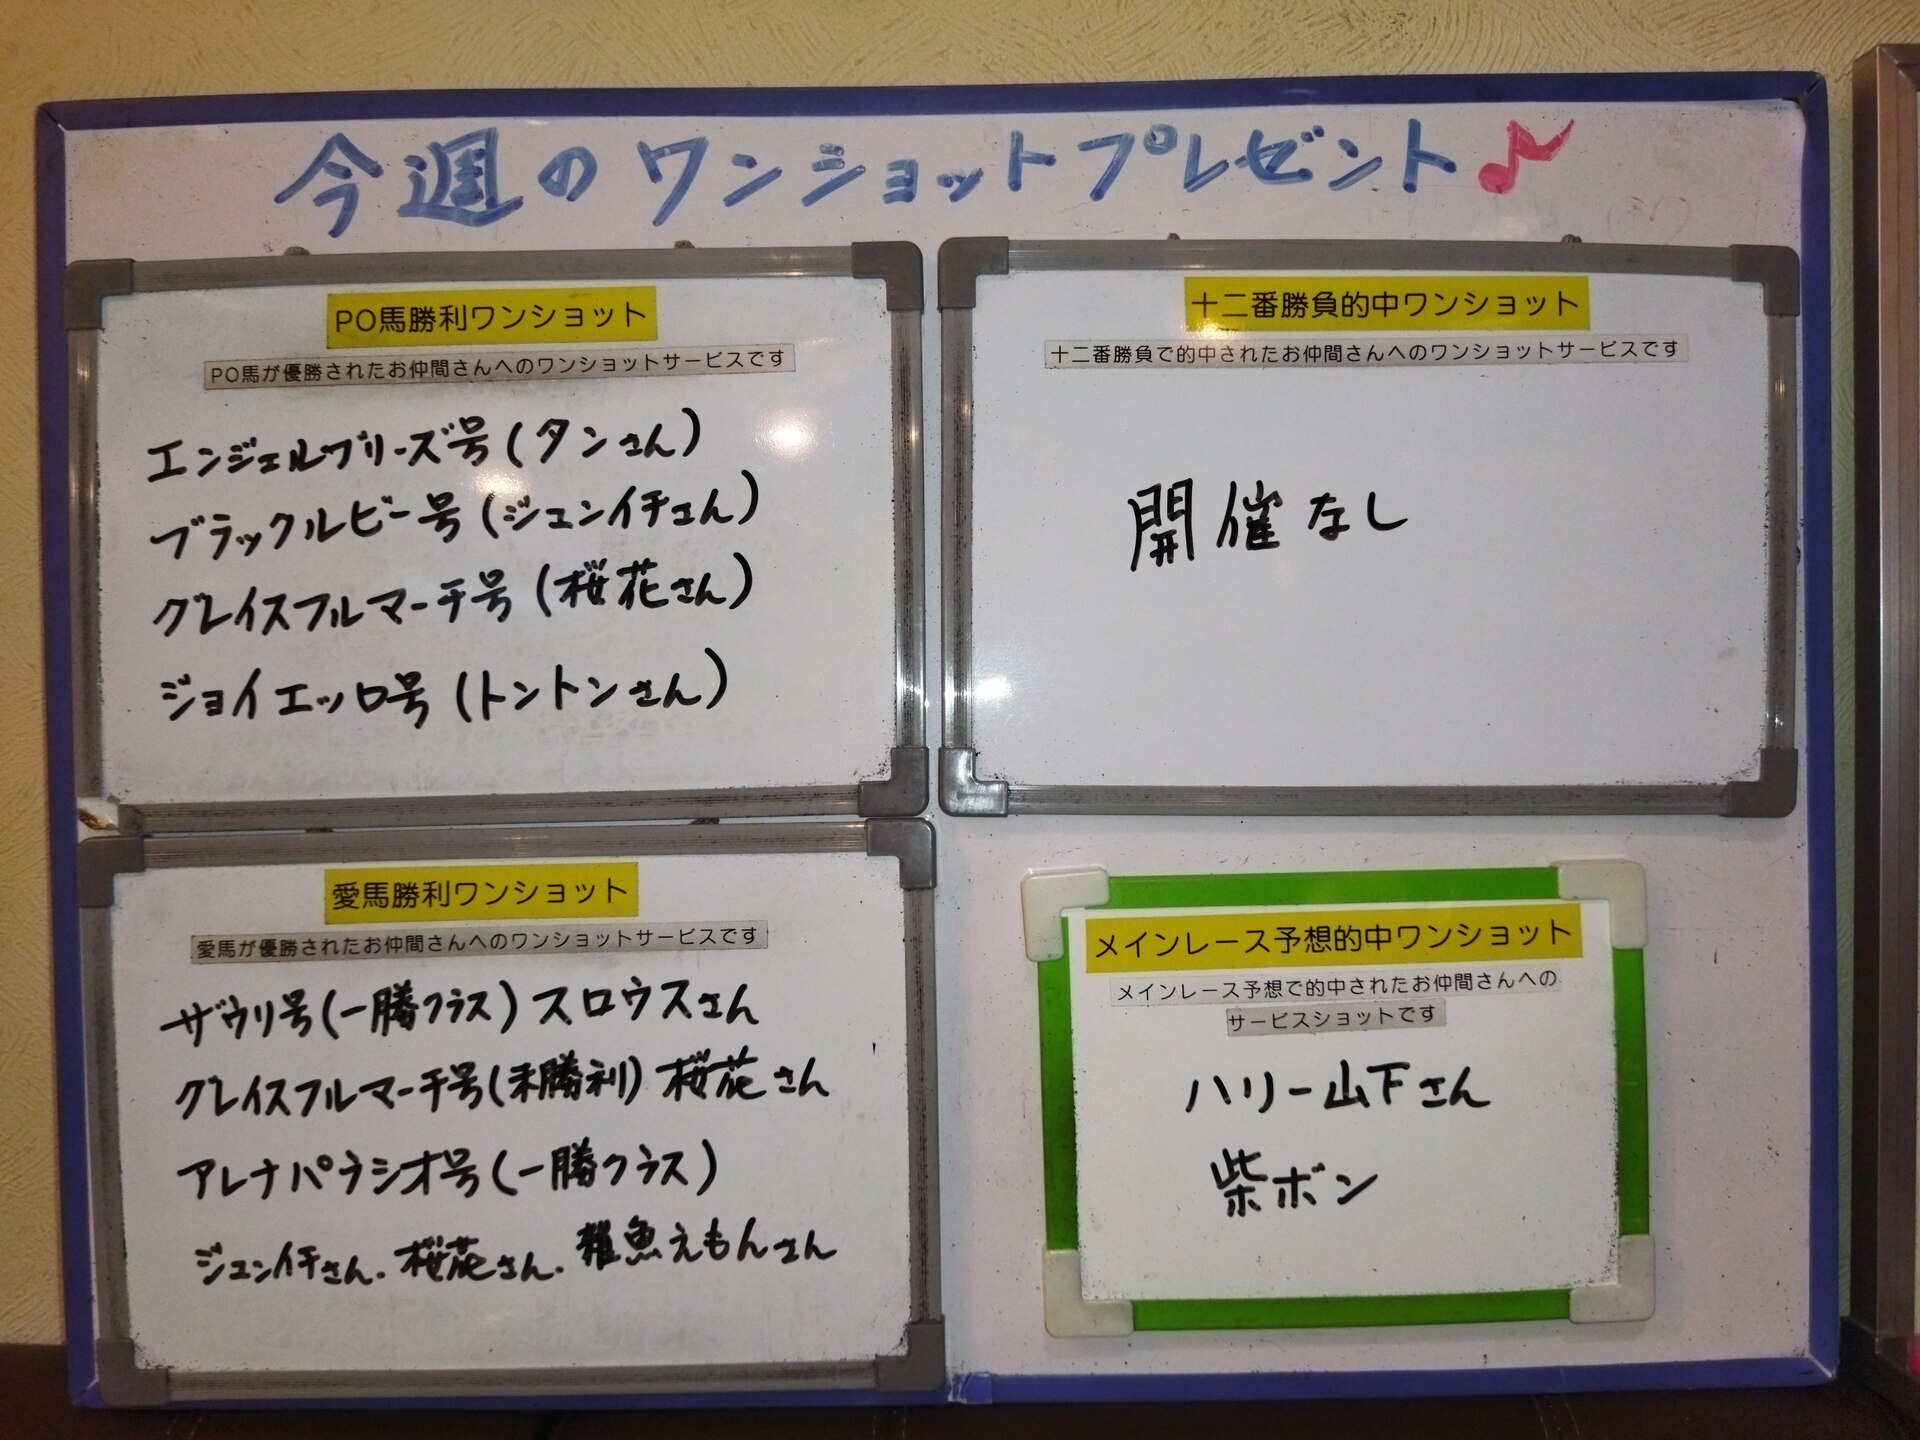 今週のワンショットプレゼント♪
PO馬勝利ワンショット
PO馬が優勝されたお仲間さんへのワンショットサービスです
エンジェルブリーズ号(タンさん)
ブラックルビー号(ジュンイチさん)
グレイスフルマーチ号(桜花さん)
ジョイエッロ号(トントンさん)
十二番勝負的中ワンショット
十二番勝負で的中されたお仲間さんへのワンショットサービスです
開催なし
愛馬勝利ワンショット
愛馬が優勝されたお仲間さんへのワンショットサービスです
ザウリ号(一勝クラス)スロウスさん
グレイスフルマーチ号(未勝利)桜花さん
アレナパラシオ号(一勝クラス)
ジュンイチさん.桜花さん.稚魚えもんさん
メインレース予想的中ワンショット
メインレース予想で的中されたお仲間さんへの
サービスショットです
ハリー山下さん
柴ボン